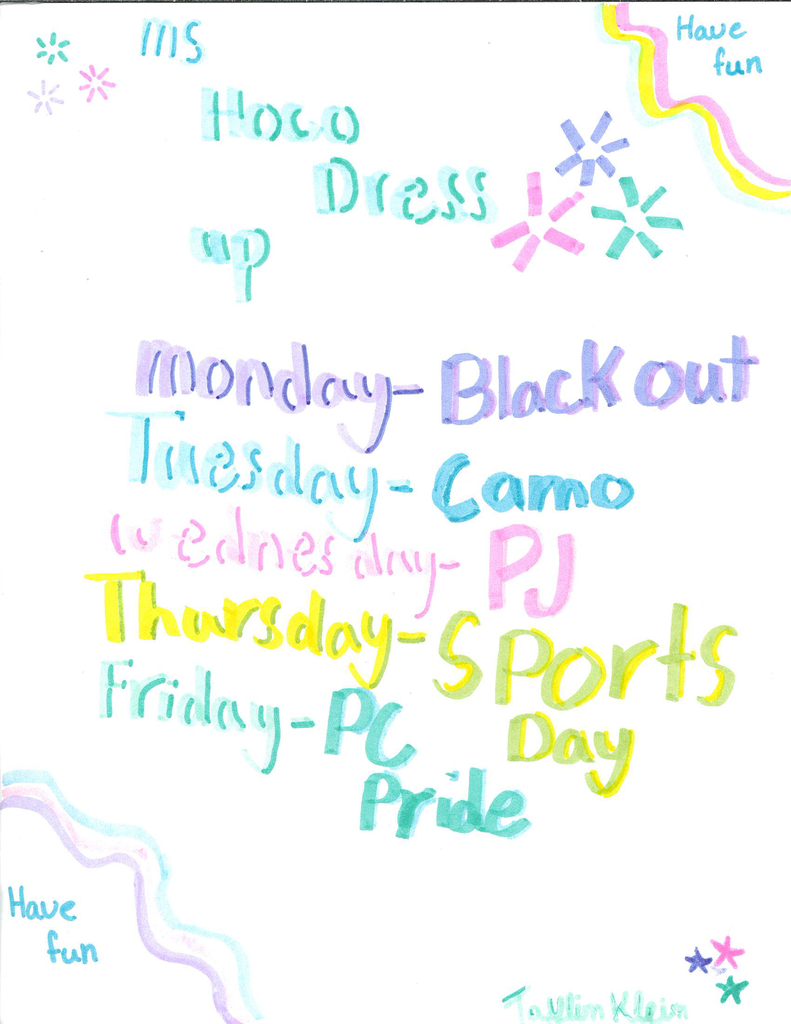 ms
Have
fun
Hoco
Dress
up
Monday- Black out
Tuesday- Camo
Wednesday- PJ
Thursday- Sports
Day
Friday- PC
Pride
Have
fun
Klein